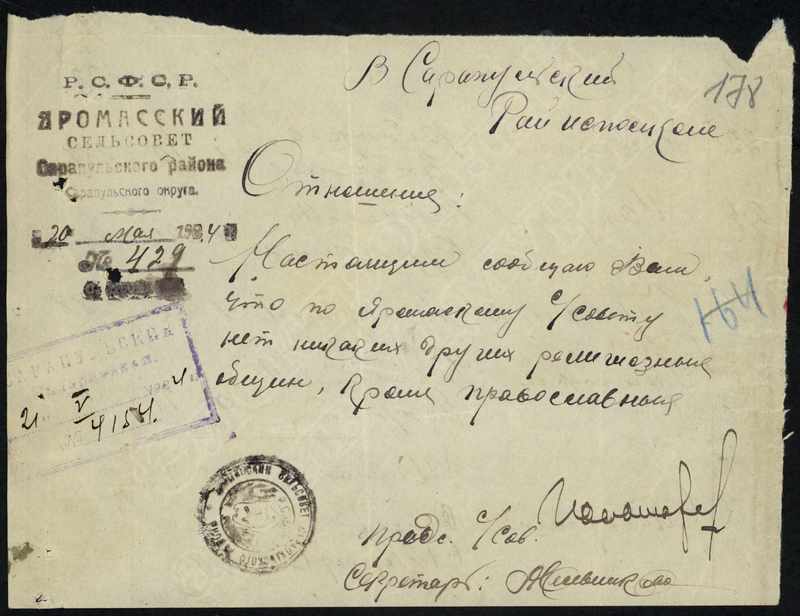 Р. С. Ф. С. Р.
ЯРОМАССКИЙ
СЕЛЬСОВЕТ
Сарапульского района
Сарапульского округа.
20 мая 1924
№ 429
В Сарапульский
Райисполком
178
Отношение:
Настоящим сообщаю Вам,
что по Яромаскому С/совету
нет никаких других религиозных
общин, кроме православных
164
21 V 4
4154.
Предс. С/сов.
Секретарь: